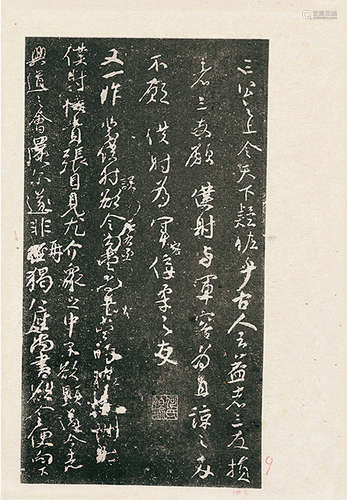 三公之上令天下疑怪乎古人云益者三友損
者三友願僕射与軍容為直諒之友
不願僕射為軍容佞柔之友
又一昨裴僕射誤欲令左右丞勾當尚書當時輒有酬對
僕射恃貴張目見尤介眾之中不欲顯過今者
興道之會還尔遂非再猲八座尚書欲令便向下